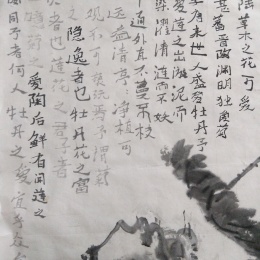 陆草木之花可爱
甚蕃晋陶渊明独爱菊
唐来世人盛爱牡丹予
爱莲之出淤泥而
染濯清涟而不妖
中通外直不蔓不枝
远益清亭亭净植可
观不可亵玩焉予谓菊
隐逸者也牡丹花之富
者也莲花之君子者
菊之爱陶后鲜有闻莲之
同予者何人牡丹之爱宜乎众